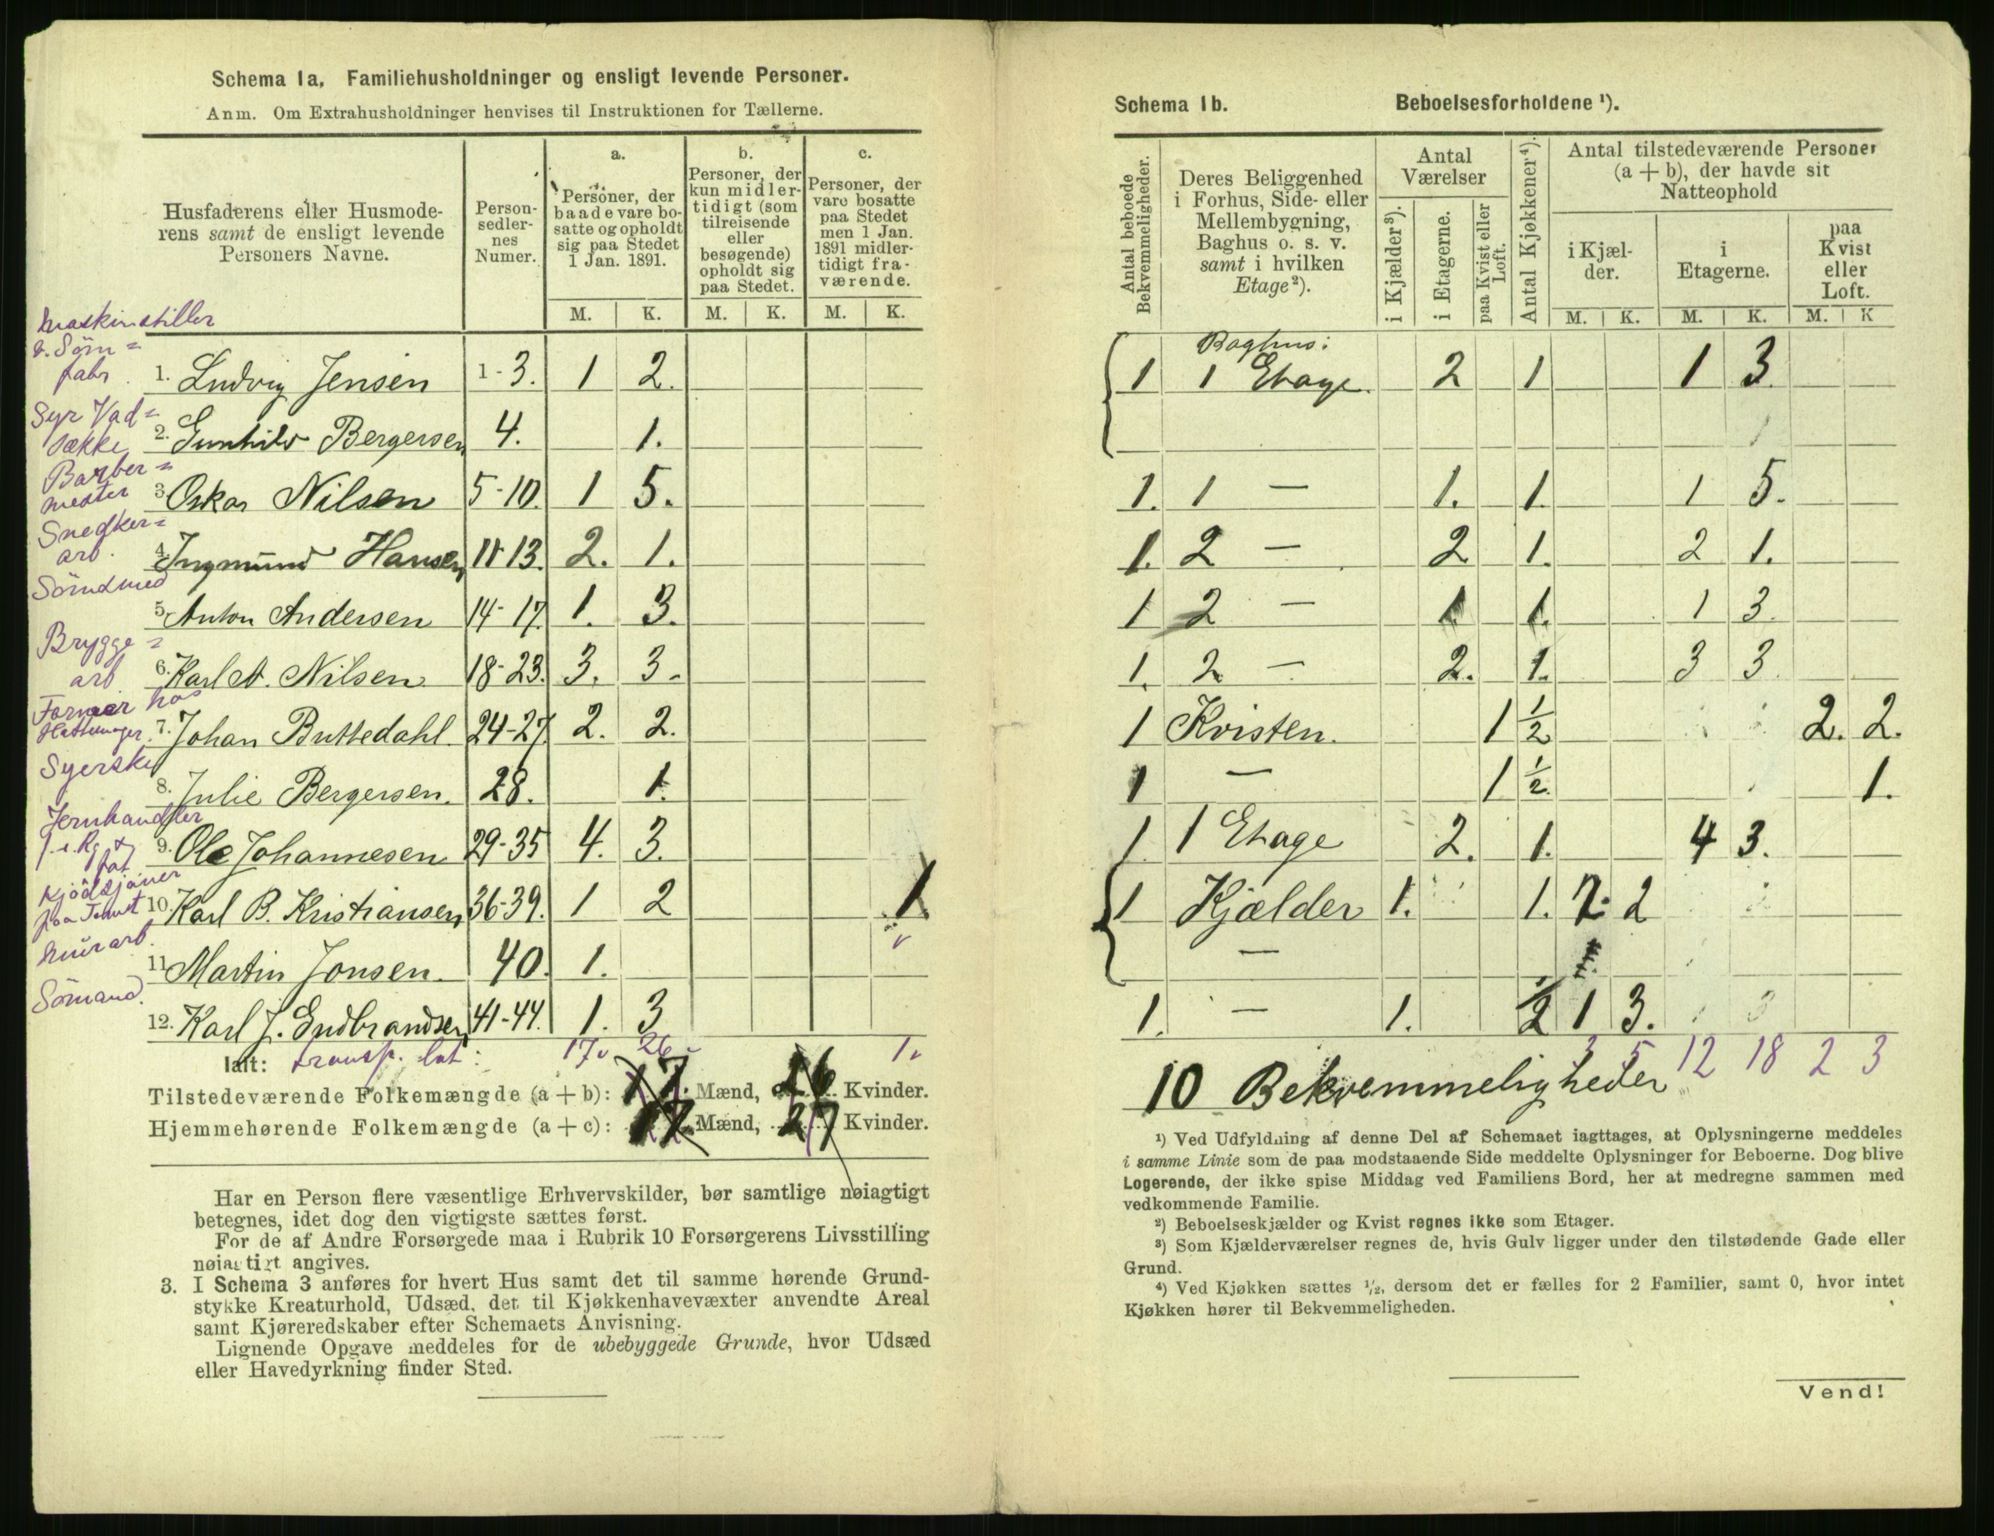 Schema 1a. Familiehusholdninger og ensligt levende Personer.
Anm. Om Extrahusholdninger henvises til Instruktionen for Tællerne.
Husfaderens eller Husmode-
rens samt de ensligt levende
Personers Navne.
Person-
sedler-
nes
Numer.
a.
Personer, der
baade vare bo-
satte og opholdt
sig paa Stedet
1 Jan. 1891.
b.
Personer, der
kun midler-
tidigt (som
tilreisende
eller
besøgende)
opholdt sig
paa Stedet.
c.
Personer, der
vare bosatte
paa Stedet
men 1 Jan.
1891 midler-
tidigt fra-
værende.
M. K. M. K. M. K.
Maskinstiller
v. Söm=
fabr.
1. Ludvig Jensen 1-3. 1 2.
Syr Vad=
sække
2. Gunhild Bergersen 4. 1.
Barber=
mester
3. Oskar Nilsen 5-10. 1 5.
Snedker=
arb.
4. Ingmund Hansen 11-13. 2. 1.
Sömdmed
5. Anton Andersen 14-17. 1. 3.
Brygge=
arb.
6. Karl A. Nilsen 18-23. 3. 3.
Former hos
7. Johan Buttedahl. 24-27. 2. 2.
Syerske
8. Julie Bergersen. 28. 1.
Jernhandler
9. Ole Johannesen 29-35 4. 3.
10. Karl B. Kristiansen 36-39. 1 2 1
Murarb.
11 Martin Jonsen. 40. 1.
Sömand.
12. Karl J. Gudbrandsen 41-44. 1. 3
Ialt: transp. lat: 17. 26. 1.
Tilstedeværende Folkemængde (a + b): 17. Mænd, 26 Kvinder.
Hjemmehørende Folkemængde (a + c): 17. Mænd, 27 Kvinder.
Har en Person flere væsentlige Erhvervskilder, bør samtlige nøiagtigt
betegnes, idet dog den vigtigste sættes først.
For de af Andre Forsørgede maa i Rubrik 10 Forsørgerens Livsstilling
nøiagtigt angives.
3. I Schema 3 anføres for hvert Hus samt det til samme hørende Grund-
stykke Kreaturhold, Udsæd, det til Kjøkkenhavevæxter anvendte Areal
samt Kjøreredskaber efter Schemaets Anvisning.
Lignende Opgave meddeles for de ubebyggede Grunde, hvor Udsæd
eller Havedyrkning finder Sted.
Schema 1b. Beboelsesforholdene ¹).
Antal beboede
Bekvemmeligheder.
Deres Beliggenhed
i Forhus, Side- eller
Mellembygning,
Baghus o. s. v.
samt i hvilken
Etage²).
Antal
Værelser
i Kjælder³).
i Etagerne.
paa Kvist eller
Loft.
Antal Kjøkkener⁴).
Antal tilstedeværende Personer
(a + b), der havde sit
Natteophold
i Kjæl-
der.
i
Etagerne.
paa
Kvist
eller
Loft.
M. K. M. K. M. K
Baghus:
1 1 Etage. 2 1 1 3
1. 1 — 1. 1. 1 5.
1. 2 — 2 1. 2 1.
1 2 — 1 1. 1 3.
1. 2 — 2. 1. 3 3
1 Kvisten. 1 ½ 2. 2.
1 — 1 ½ 1.
1. 1 Etage 2. 1. 4 3.
1 Kjælder 1. 1. 2. 2
—
1. — 1. ½ 1 3.
3 5 12 18 2 3
10 Bekvemmeligheder
¹) Ved Udfyldning af denne Del af Schemaet iagttages, at Oplysningerne meddeles
i samme Linie som de paa modstaaende Side meddelte Oplysninger for Beboerne. Dog blive
Logerende, der ikke spise Middag ved Familiens Bord, her at medregne sammen med
vedkommende Familie.
²) Beboelseskjælder og Kvist regnes ikke som Etager.
³) Som Kjælderværelser regnes de, hvis Gulv ligger under den tilstødende Gade eller
Grund.
⁴) Ved Kjøkken sættes ¹/₂, dersom det er fælles for 2 Familier, samt 0, hvor intet
Kjøkken hører til Bekvemmeligheden.
Vend!